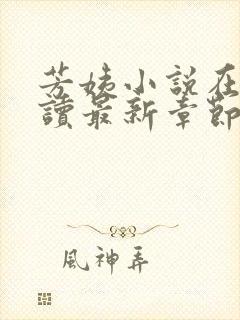 芳姨小說在
讀最新章節
風神弄